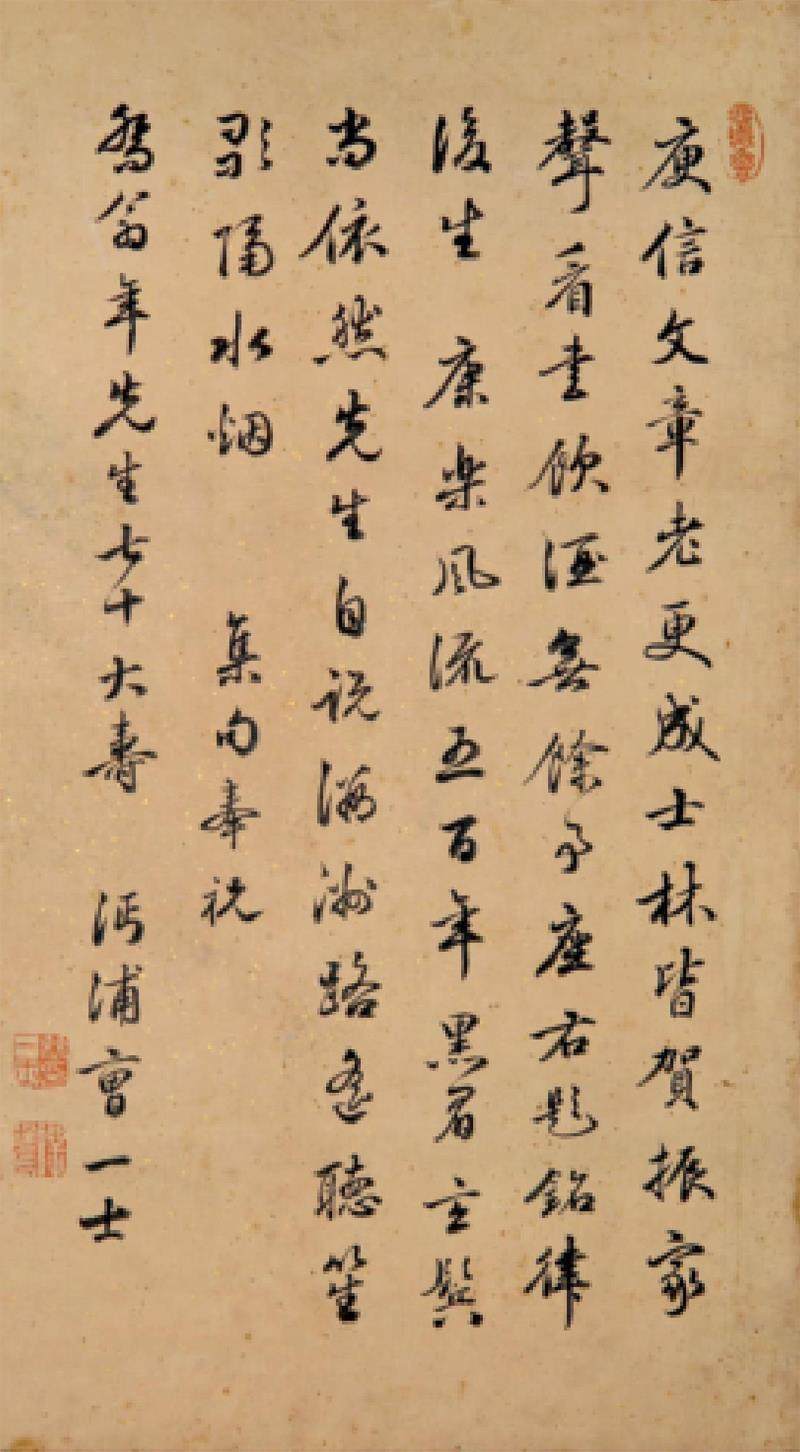 庾信文章老更成士林皆賀振家
聲看書飲酒無餘事座右題銘律
後生 康樂風流五百年黑眉玄鬢
尚依然先生自説瀛洲路遙聽笙
歌隔水烟 集句奉祝
喬翁年先生七十大壽 沔浦曹一士